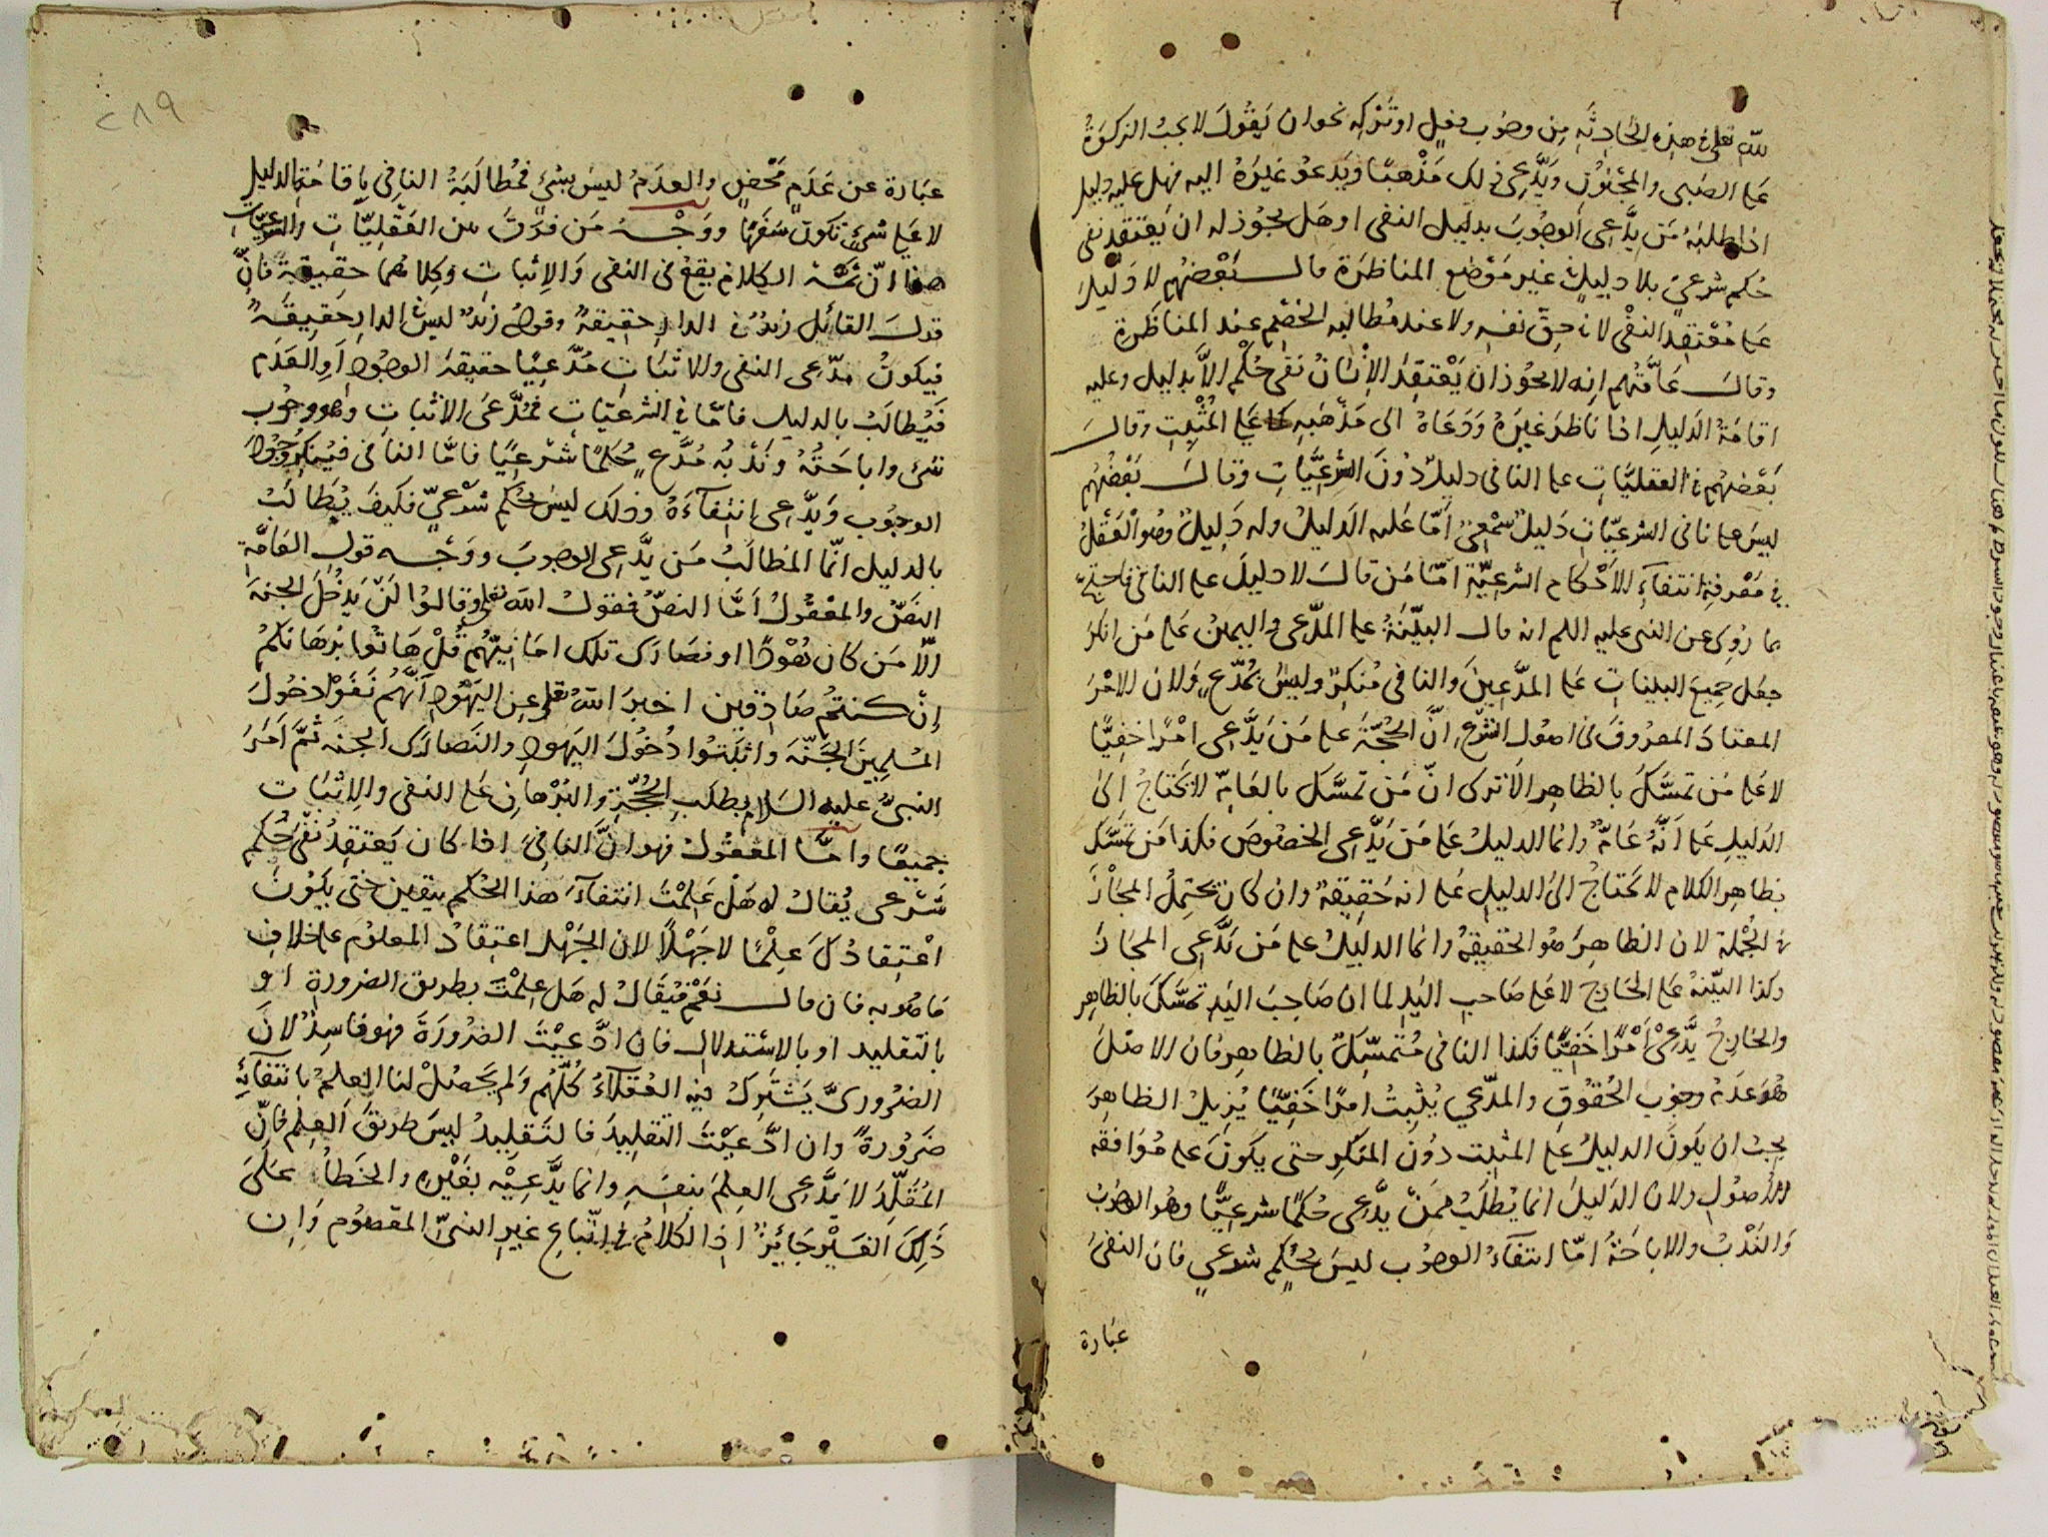 لله تعلى في هذه الحادثة من وجوب فعل او تركه نحو ان يقول لا يجب الزكوة
على الصبى والمجنون ويدّعى ذلك مذهبًا ويدعو غيره اليه فهل عليه دليل
اذا طلبه من يدّعى الوجوب بدليل النفى او هل يجوز له ان يعتقد نفى
حكم شرعىّ بلا دليل في غير موضع المناظرة قال بعضهم لا دليل
على معتقد النفى لا في حق نفسه ولا عند مطالبه الخصم عند المناظرة
وقال عامّتهم انه لا يجوز ان يعتقد الانسان نفى حكم الاّ بدليل وعليه
اقامة الدليل اذا ناظر غيره ودعاه الى مذهبه كما على المثبت وقال
بعضهم في العقليّات على النافى دليل دون الشرعيّات وقال بعضهم
ليس على نافى الشرعيّات دليل سمعىّ امّا عليه الدليل وله دليل وهو العقل
في معرفة انتفاء الاحكام الشرعيّة امّا من قال لا دليل على النافى فاحتجّ
بما روى عن النبى عليه اللم انه قال البيّنة على المدّعى واليمين على من انكر
جعل جميع البينات على المدّعين والنافى منكر وليس بمدّع ولان الامر
المعتاد المعروف في اصول الشرع انّ الحجّة على من يدّعى امرًا خفيًّا
لا على من تمسّك بالظاهر الا ترى انّ من تمسّك بالعامّ لا يحتاج الى
الدليل على انّه عامّ وانما الدليل على من يدّعى الخصوص فكذا من تمسّك
بظاهر الكلام لا يحتاج الى الدليل على انه حقيقة وان كان يحتمل المجاز
في الجملة لان الظاهر هو الحقيقة وانما الدليل على من يدّعى المجاز
وكذا البيّنة على الخارج لا على صاحب اليد لما ان صاحب اليد تمسّك بالظاهر
والخارج يدّعى امرًا خفيًّا فكذا النافى متمسّك بالظاهر فان الاصل
هو عدم وجوب الحقوق والمدّعي يثبت امرًا خفيًّا يزيل الظاهر
يجب ان يكون الدليل على المثبت دون المنكر حتى يكون على موافقه
الاصول ولان الدليل انما يطلب ممن يدّعى حكمًا شرعيًّا وهو الوجوب
والندب والاباحة امّا انتفاء الوجوب ليس بحكم شرعي فان النفى
عبارة
٢٨٩
عبارة عن عدم محض والعدم ليس بشئ فمطالبة النافى باقامة الدليل
لا على شئ تكون سفهًا ووجه من فرّق بين العقليّات والشرعيّات
هو انّ ثمّه الكلام يقع في النفى والاثبات وكلاهما حقيقة فانّ
قول القائل زيد في الدار حقيقة وقوله زيد ليس في الدار حقيقة
فيكون مدّعى النفى والاثبات مدّعيًا حقيقة الوجود او العدم
فيطالب بالدليل فامّا في الشرعيّات فمدّعى الاثبات وهو وجوب
شئ واباحته وندبه مدّع حكمًا شرعيًا فامّا النافى فينكر وجود
الوجوب ويدّعى انتفاءه وذلك ليس بحكم شرعىّ فكيف يطالب
بالدليل انّما المطالب من يدّعى الوجوب ووجه قول العامّة
النصّ والمعقول امّا النصّ فقول الله تعلى وقالوا لن يدخل الجنة
الاّ من كان هودًا او نصارى تلك امانيّهم قل هاتوا برهانكم
إن كنتم صادقين اخبر الله تعلى عن اليهود انّهم نفوا دخول
المسلمين الجنّة واثبتوا دخول اليهود والنصارى الجنة ثمّ امر
النبىّ عليه السلام بطلب الحجّة والبرهان على النفى والاثبات
جميعًا وامّا المعقول فهو انّ النافى اذا كان يعتقد نفى حكم
شرعى يقال له هل علمت انتفاء هذا الحكم بيقين حتى يكون
اعتقادك علمًا لا جهلًا لان الجهل اعتقاد المعلوم على خلاف
ما هو به فان قال نعم فيقال له هل علمت بطريق الضرورة او
بالتقليد او بالاستدلال فان ادّعيت الضرورة فهو فاسد لان
الضرورىّ يشترك فيه العقلاء كلّهم ولم يحصل لنا العلم بانتفائه
ضرورة وان ادّعيت التقليد فالتقليد ليس طريق العلم فانّ
المقلّد لا يدّعى العلم بنفسه وانما يدّعيه بغيره والخطأ على
ذلك الغير جائز اذ الكلام في اتّباع غير النبىّ المعصوم وان